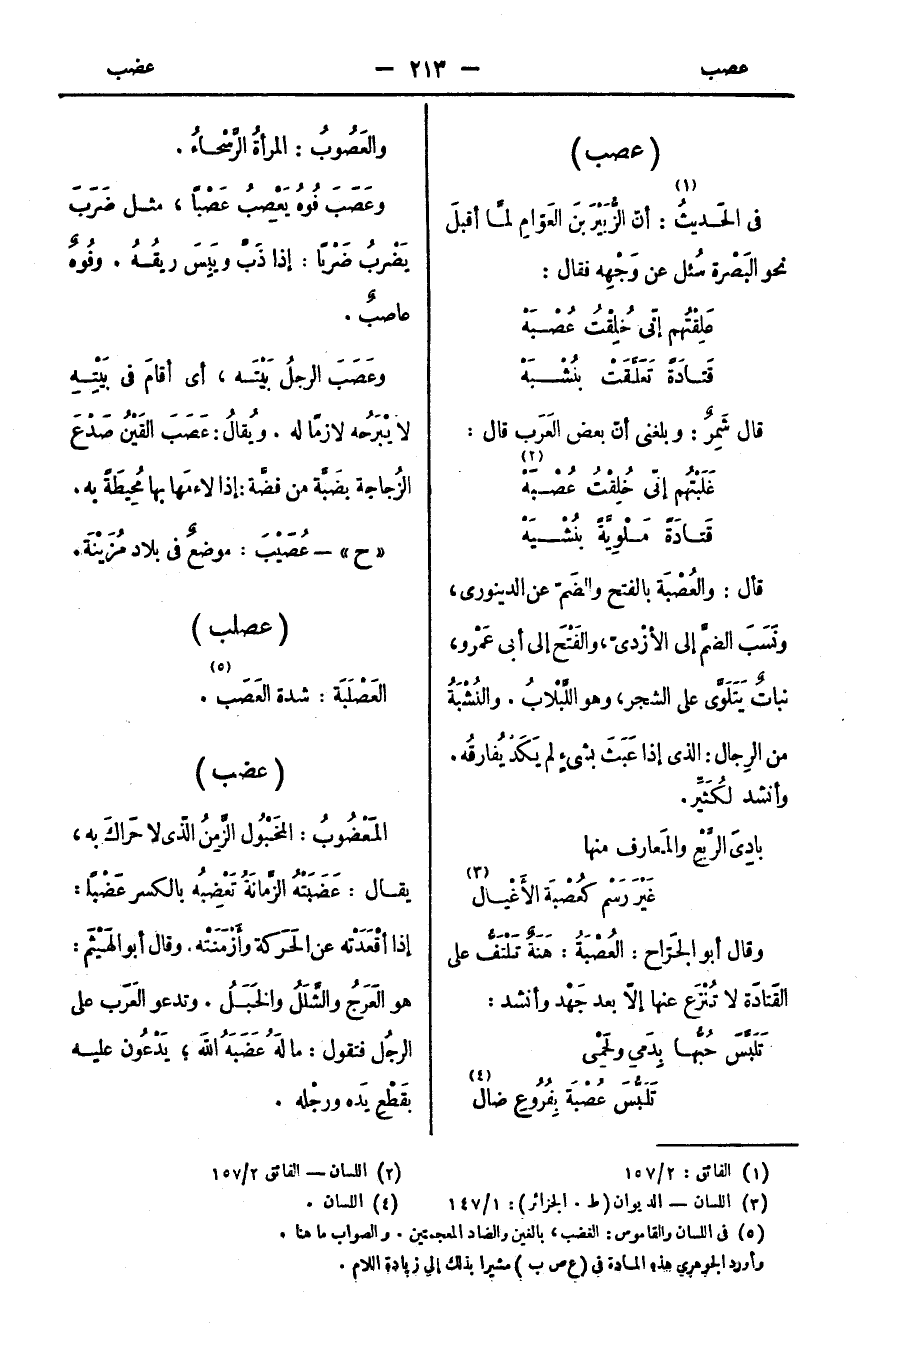 عصب — ٢١٣ — عضب
(عصب)
فى الحَديثُ (١) : أنّ الزُّبَيْرَ بنَ العَوّامِ لمَّا أقبلَ
نحو البَصْرة سُئل عن وَجْهِه فقال :
عَلِقْتُهم إنّى خُلِقْتُ عُصْبَهْ
قَتادَةً تَعَلَّقَتْ بنُشْبَهْ
قال شَمِرٌ : وبلغنى أنّ بعض العَرَب قال :
غَلَبْتُهم إنّى خُلِقْتُ عُصْبَهْ (٢)
قَتادَةً مَلْوِيَّةً بنُشْبَهْ
قال : والعُصْبَة بالفتح والضَمّ عن الدينورى،
ونَسَبَ الضمَّ إلى الأزْدىّ، والفَتْحَ إلى أبى عَمْرو،
نباتٌ يَتَلَوَّى على الشجر، وهو اللَّبْلابُ . والنُشْبَةُ
من الرِجال : الذى إذا عَبَثَ بشىءٍ لم يَكَدْ يُفارقُه .
وأنشد لكُثَيِّر .
بادِىَ الرَّبْعِ والمَعارف منها
غَيْرَ رَسْم كعُصْبَة الأَغْيـال (٣)
وقال أبو الجَرّاح : العُصْبَةُ : هَنَةٌ تَلْتَفُّ على
القَتادَة لا تُنْزَع عنها إلّا بعد جَهْد وأنشد :
تَلَبَّسَ حُبُّهـا بِدَمِي ولَحْمِى
تَلَبُّسَ عُصْبَة بِفُرُوعِ ضال (٤)
والعَصُوبُ : المرأةُ الرَّسْحاءُ .
وعَصَبَ فُوهُ يَعْصِبُ عَصْبًا، مثـل ضَرَبَ
يَضْرِبُ ضَرْبًا : إذا ذَبَّ ويَبِسَ ريقُـهُ . وفُوهُ
عاصبٌ .
وعَصَبَ الرجلُ بَيْتَـه ، أى أقامَ فى بَيْتِـهِ
لا يَبْرَحُه لازمًا له . ويُقالُ : عَصَبَ القَيْنُ صَدْعَ
الزُجاجة بضَبَّة من فضَّة : إذا لاءمَها بها مُحِيطَةً به .
«ح» — عُصَيْبَ : موضعٌ فى بلاد مُزَيْنَةَ .
(عصلب)
العَصْلَبَة : شدة العَصَب (٥) .
(عضب)
المَعْضُوبُ : المَخْبُول الزَّمِنُ الّذى لا حَرَاكَ به ،
يقـال : عَضَبَتْهُ الزَّمانَةُ تَعْضِبُه بالكسر عَضْبًا :
إذا أقْعَدَتْه عن الحَركة وأزْمَنَتْه . وقال أبو الهَيْثَم :
هو العَرَجُ والشَّلَلُ والخَبَـلُ . وتدعو العَرَب على
الرجُل فتقول : ما لَهُ عَضَبَهُ اللهُ ؛ يَدْعُون عليـه
بقَطْعِ يَده ورجْله .
(١) الفائق : ٢/١٥٧ (٢) اللسان — الفائق ٢/١٥٧
(٣) اللسان — الديوان (ط . الجزائر) : ١/١٤٧ (٤) اللسان .
(٥) فى اللسان والقاموس : الغضب ، بالغين والضاد المعجمتين . والصواب ما هنا .
وأورد الجوهري هذه المـادة فى (ع ص ب) مشيرا بذلك إلي زيادة اللام .